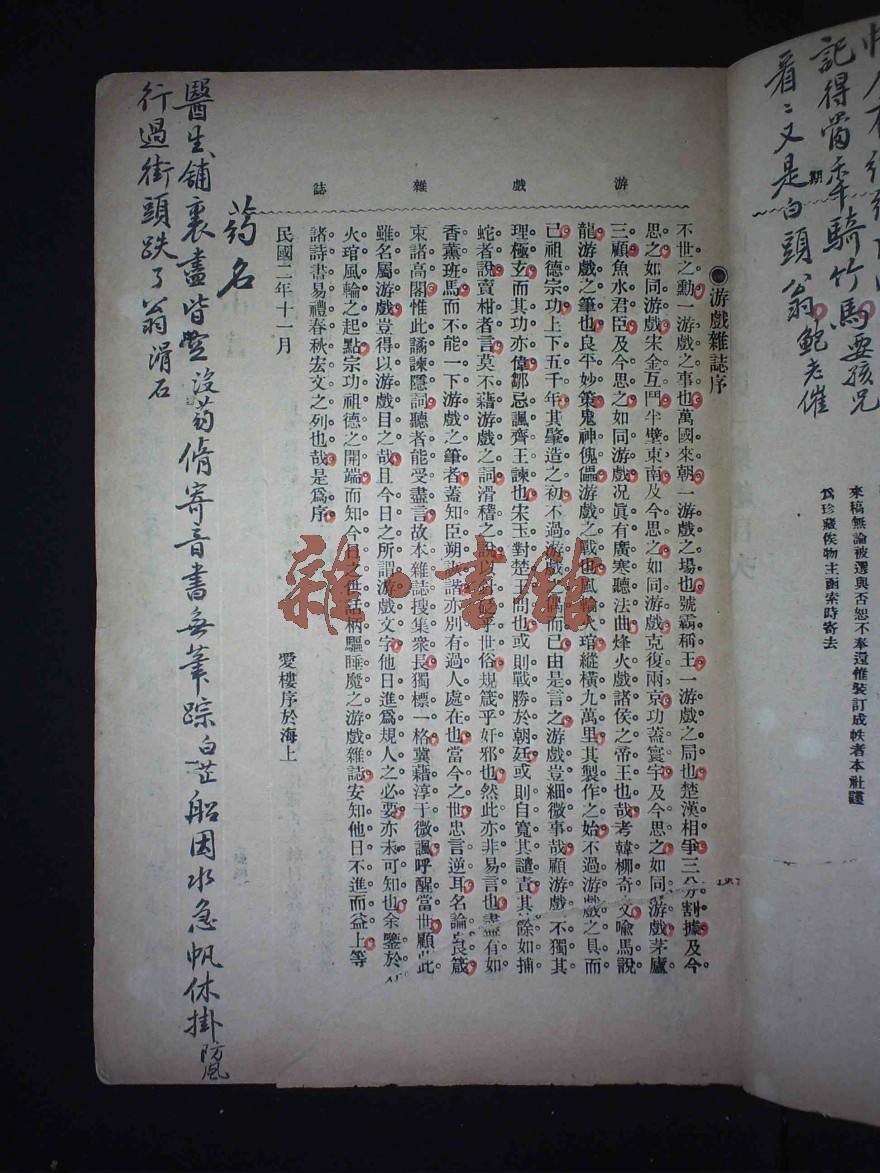 怀
記得當年騎竹馬耍孩兒
看〻又是白頭翁 鮑老催
期
來稿無論被選與否恕不奉還惟裝訂成帙者本社謹
爲珍藏俟物主函索時寄去
游戲雜誌
●游戲雜誌序
不世之勳一游戲之事也萬國來朝一游戲之場也號霸稱王一游戲之局也楚漢相爭三分割據及今
思之如同游戲宋金互鬥半壁東南及今思之如同游戲克復兩京功蓋寰宇及今思之如同游戲茅廬
三顧魚水君臣及今思之如同游戲况眞有廣寒聽法曲烽火戲諸侯之帝王也哉考韓柳奇文喩馬說
龍游戲之筆也良平妙策鬼神傀儡游戲之戰也風輪火琯縱橫九萬里其製作之始不過游戲之具而
已祖德宗功上下五千年其肇造之初不過游戲之偶而已由是言之游戲豈細微事哉顧游戲不獨其
理極玄而其功亦偉鄒忌諷齊王諫也宋玉對楚王問也或則戰勝於朝廷或則自寬其譴責其餘如捕
蛇者說賣柑者言莫不藉游戲之詞滑稽之說以針砭乎世俗規箴乎奸邪也然此亦非易言也盡有如
香薰班馬而不能一下游戲之筆者蓋知臣朔詼諧亦別有過人處在也當今之世忠言逆耳名論良箴
束諸高閣惟此譎諫隱詞聽者能受盡言故本雜誌搜集衆長獨標一格冀藉淳于微諷呼醒當世顧此
雖名屬游戲豈得以游戲目之哉且今日之所謂游戲文字他日進爲規人之必要亦未可知也余鑒於
火琯風輪之起點宗功祖德之開端而知今日之供話柄驅睡魔之游戲雜誌安知他日不進而益上等
諸詩書易禮春秋宏文之列也哉是爲序
民國二年十一月 愛樓序於海上
葯名
醫生鋪裏盡皆空 沒葯 脩寄音書無筆踪 白芷 船因水急帆休掛 防風
行過街頭跌了翁 滑石
雜·書館